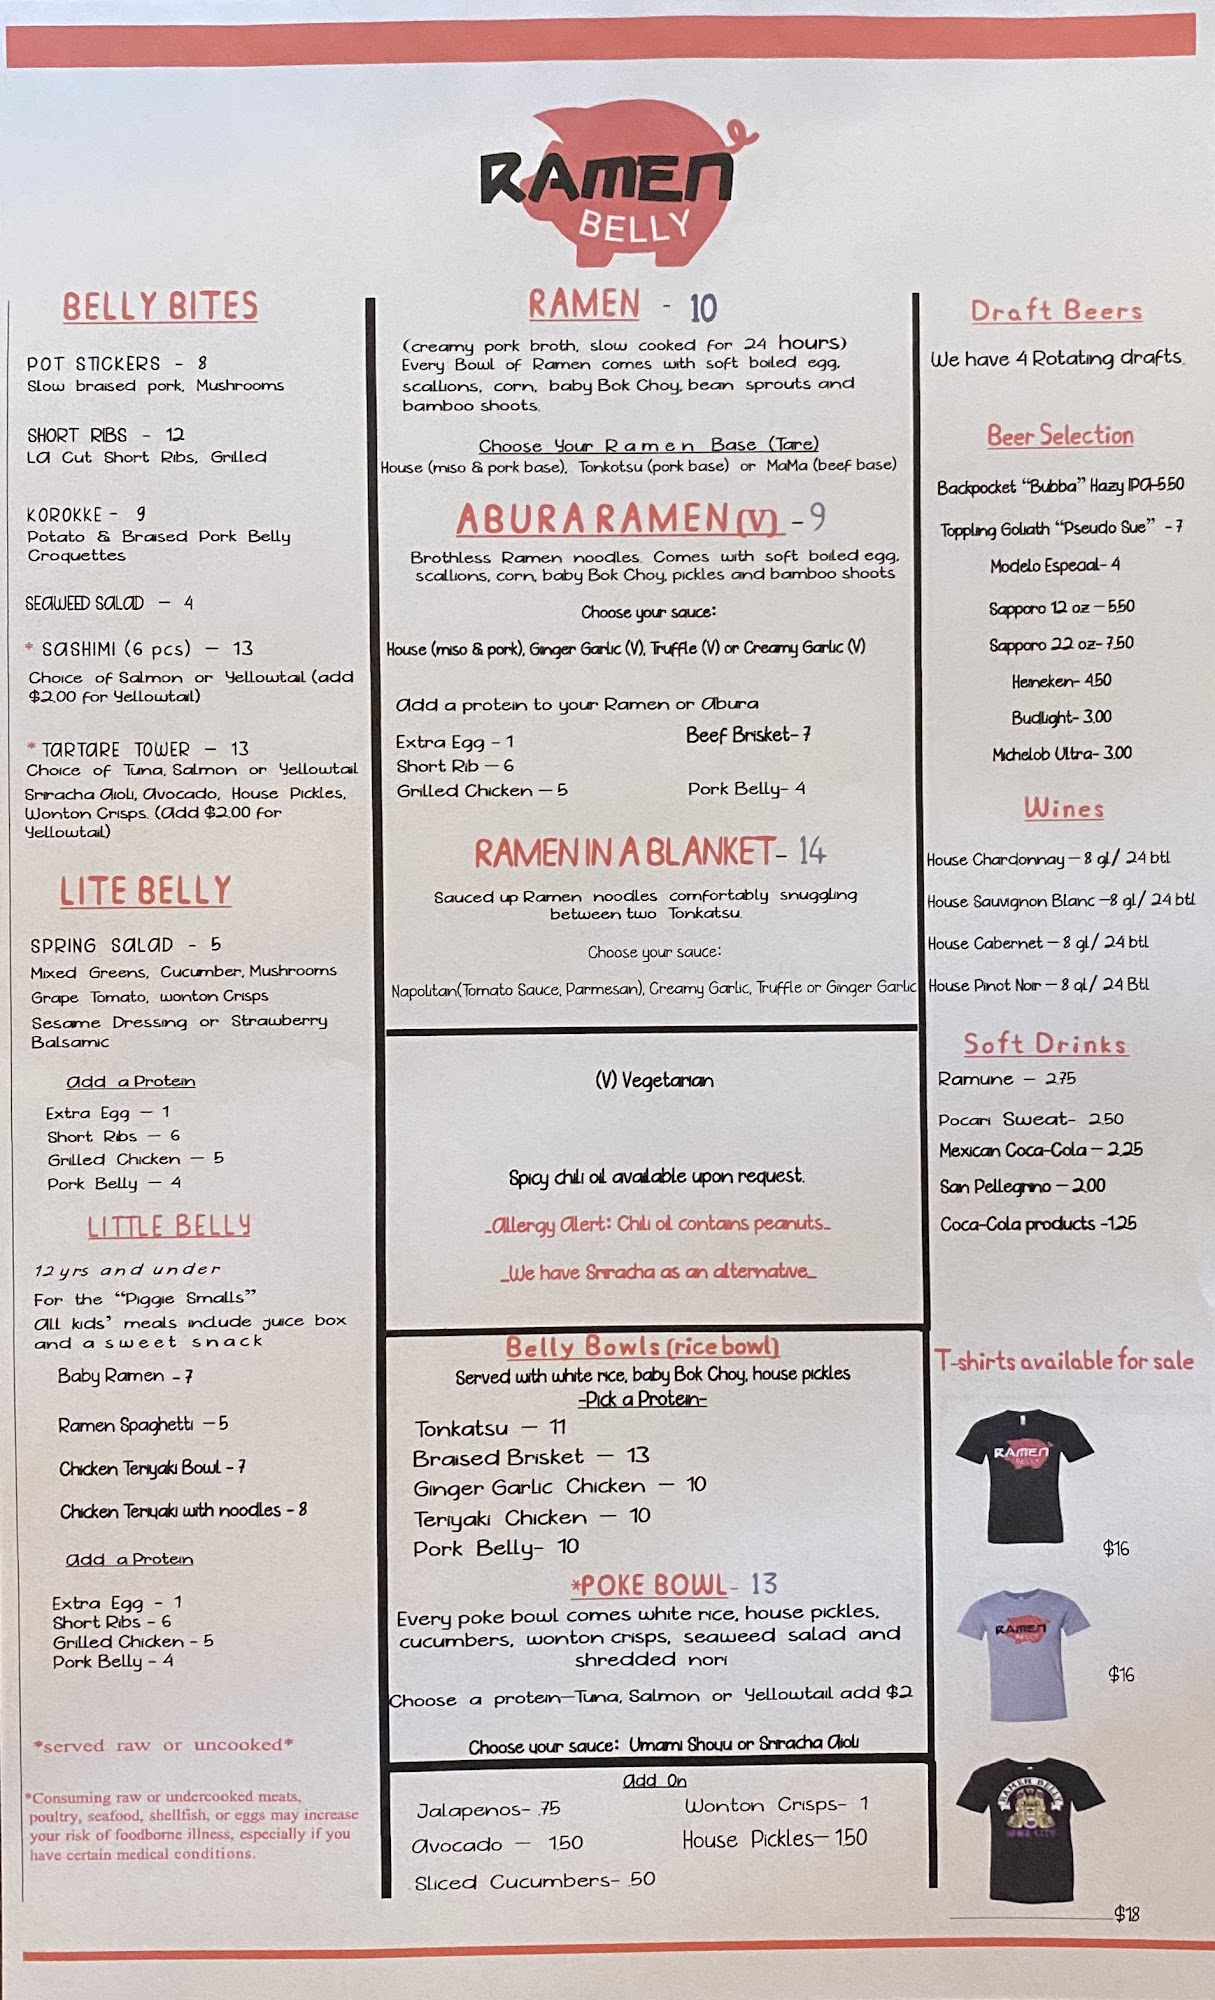 RAMEN
BELLY
BELLY BITES
POT STICKERS - 8
Slow braised pork, Mushrooms
SHORT RIBS - 12
LA Cut Short Ribs, Grilled
KOROKKE - 9
Potato & Braised Pork Belly
Croquettes
SEAWEED SALAD - 4
* SASHIMI (6 pcs) - 13
Choice of Salmon or Yellowtail (add
$2.00 for Yellowtail)
* TARTARE TOWER - 13
Choice of Tuna, Salmon or Yellowtail
Sriracha Aioli, Avocado, House Pickles,
Wonton Crisps. (Add $2.00 for
Yellowtail)
LITE BELLY
SPRING SALAD - 5
Mixed Greens, Cucumber, Mushrooms
Grape Tomato, wonton Crisps
Sesame Dressing or Strawberry
Balsamic
Add a Protein
Extra Egg - 1
Short Ribs - 6
Grilled Chicken - 5
Pork Belly - 4
LITTLE BELLY
12 yrs and under
For the "Piggie Smalls"
All kids' meals include juice box
and a sweet snack
Baby Ramen - 7
Ramen Spaghetti - 5
Chicken Teriyaki Bowl - 7
Chicken Teriyaki with noodles - 8
Add a Protein
Extra Egg - 1
Short Ribs - 6
Grilled Chicken - 5
Pork Belly - 4
*served raw or uncooked*
*Consuming raw or undercooked meats,
poultry, seafood, shellfish, or eggs may increase
your risk of foodborne illness, especially if you
have certain medical conditions.
RAMEN - 10
(creamy pork broth, slow cooked for 24 hours)
Every Bowl of Ramen comes with soft boiled egg,
scallions, corn, baby Bok Choy, bean sprouts and
bamboo shoots.
Choose Your Ramen Base (Tare)
House (miso & pork base), Tonkotsu (pork base) or MaMa (beef base)
ABURA RAMEN (V) - 9
Brothless Ramen noodles. Comes with soft boiled egg,
scallions, corn, baby Bok Choy, pickles and bamboo shoots
Choose your sauce:
House (miso & pork), Ginger Garlic (V), Truffle (V) or Creamy Garlic (V)
Add a protein to your Ramen or Abura
Extra Egg - 1
Beef Brisket- 7
Short Rib - 6
Grilled Chicken - 5
Pork Belly- 4
RAMEN IN A BLANKET- 14
Sauced up Ramen noodles comfortably snuggling
between two Tonkatsu.
Choose your sauce:
Napolitan(Tomato Sauce, Parmesan), Creamy Garlic, Truffle or Ginger Garlic
(V) Vegetarian
Spicy chili oil available upon request.
_Allergy Alert: Chili oil contains peanuts_
_We have Sriracha as an alternative_
Belly Bowls (rice bowl)
Served with white rice, baby Bok Choy, house pickles
-Pick a Protein-
Tonkatsu - 11
Braised Brisket - 13
Ginger Garlic Chicken - 10
Teriyaki Chicken - 10
Pork Belly- 10
*POKE BOWL- 13
Every poke bowl comes white rice, house pickles,
cucumbers, wonton crisps, seaweed salad and
shredded nori
Choose a protein-Tuna, Salmon or Yellowtail add $2
Choose your sauce: Umami Shoyu or Sriracha Aioli
Add On
Jalapenos- .75
Wonton Crisps- 1
Avocado - 1.50
House Pickles- 1.50
Sliced Cucumbers- .50
Draft Beers
We have 4 Rotating drafts.
Beer Selection
Backpocket "Bubba" Hazy IPA-5.50
Toppling Goliath "Pseudo Sue" - 7
Modelo Especial- 4
Sapporo 12 oz - 5.50
Sapporo 22 oz- 7.50
Heineken- 4.50
Budlight- 3.00
Michelob Ultra- 3.00
Wines
House Chardonnay - 8 gl/ 24 btl
House Sauvignon Blanc -8 gl/ 24 btl
House Cabernet - 8 gl/ 24 btl
House Pinot Noir - 8 gl/ 24 Btl
Soft Drinks
Ramune - 2.75
Pocari Sweat- 2.50
Mexican Coca-Cola - 2.25
San Pellegrino - 2.00
Coca-Cola products -1.25
T-shirts available for sale
RAMEN
BELLY
$16
RAMEN
BELLY
$16
RAMEN BELLY
IOWA CITY
$18